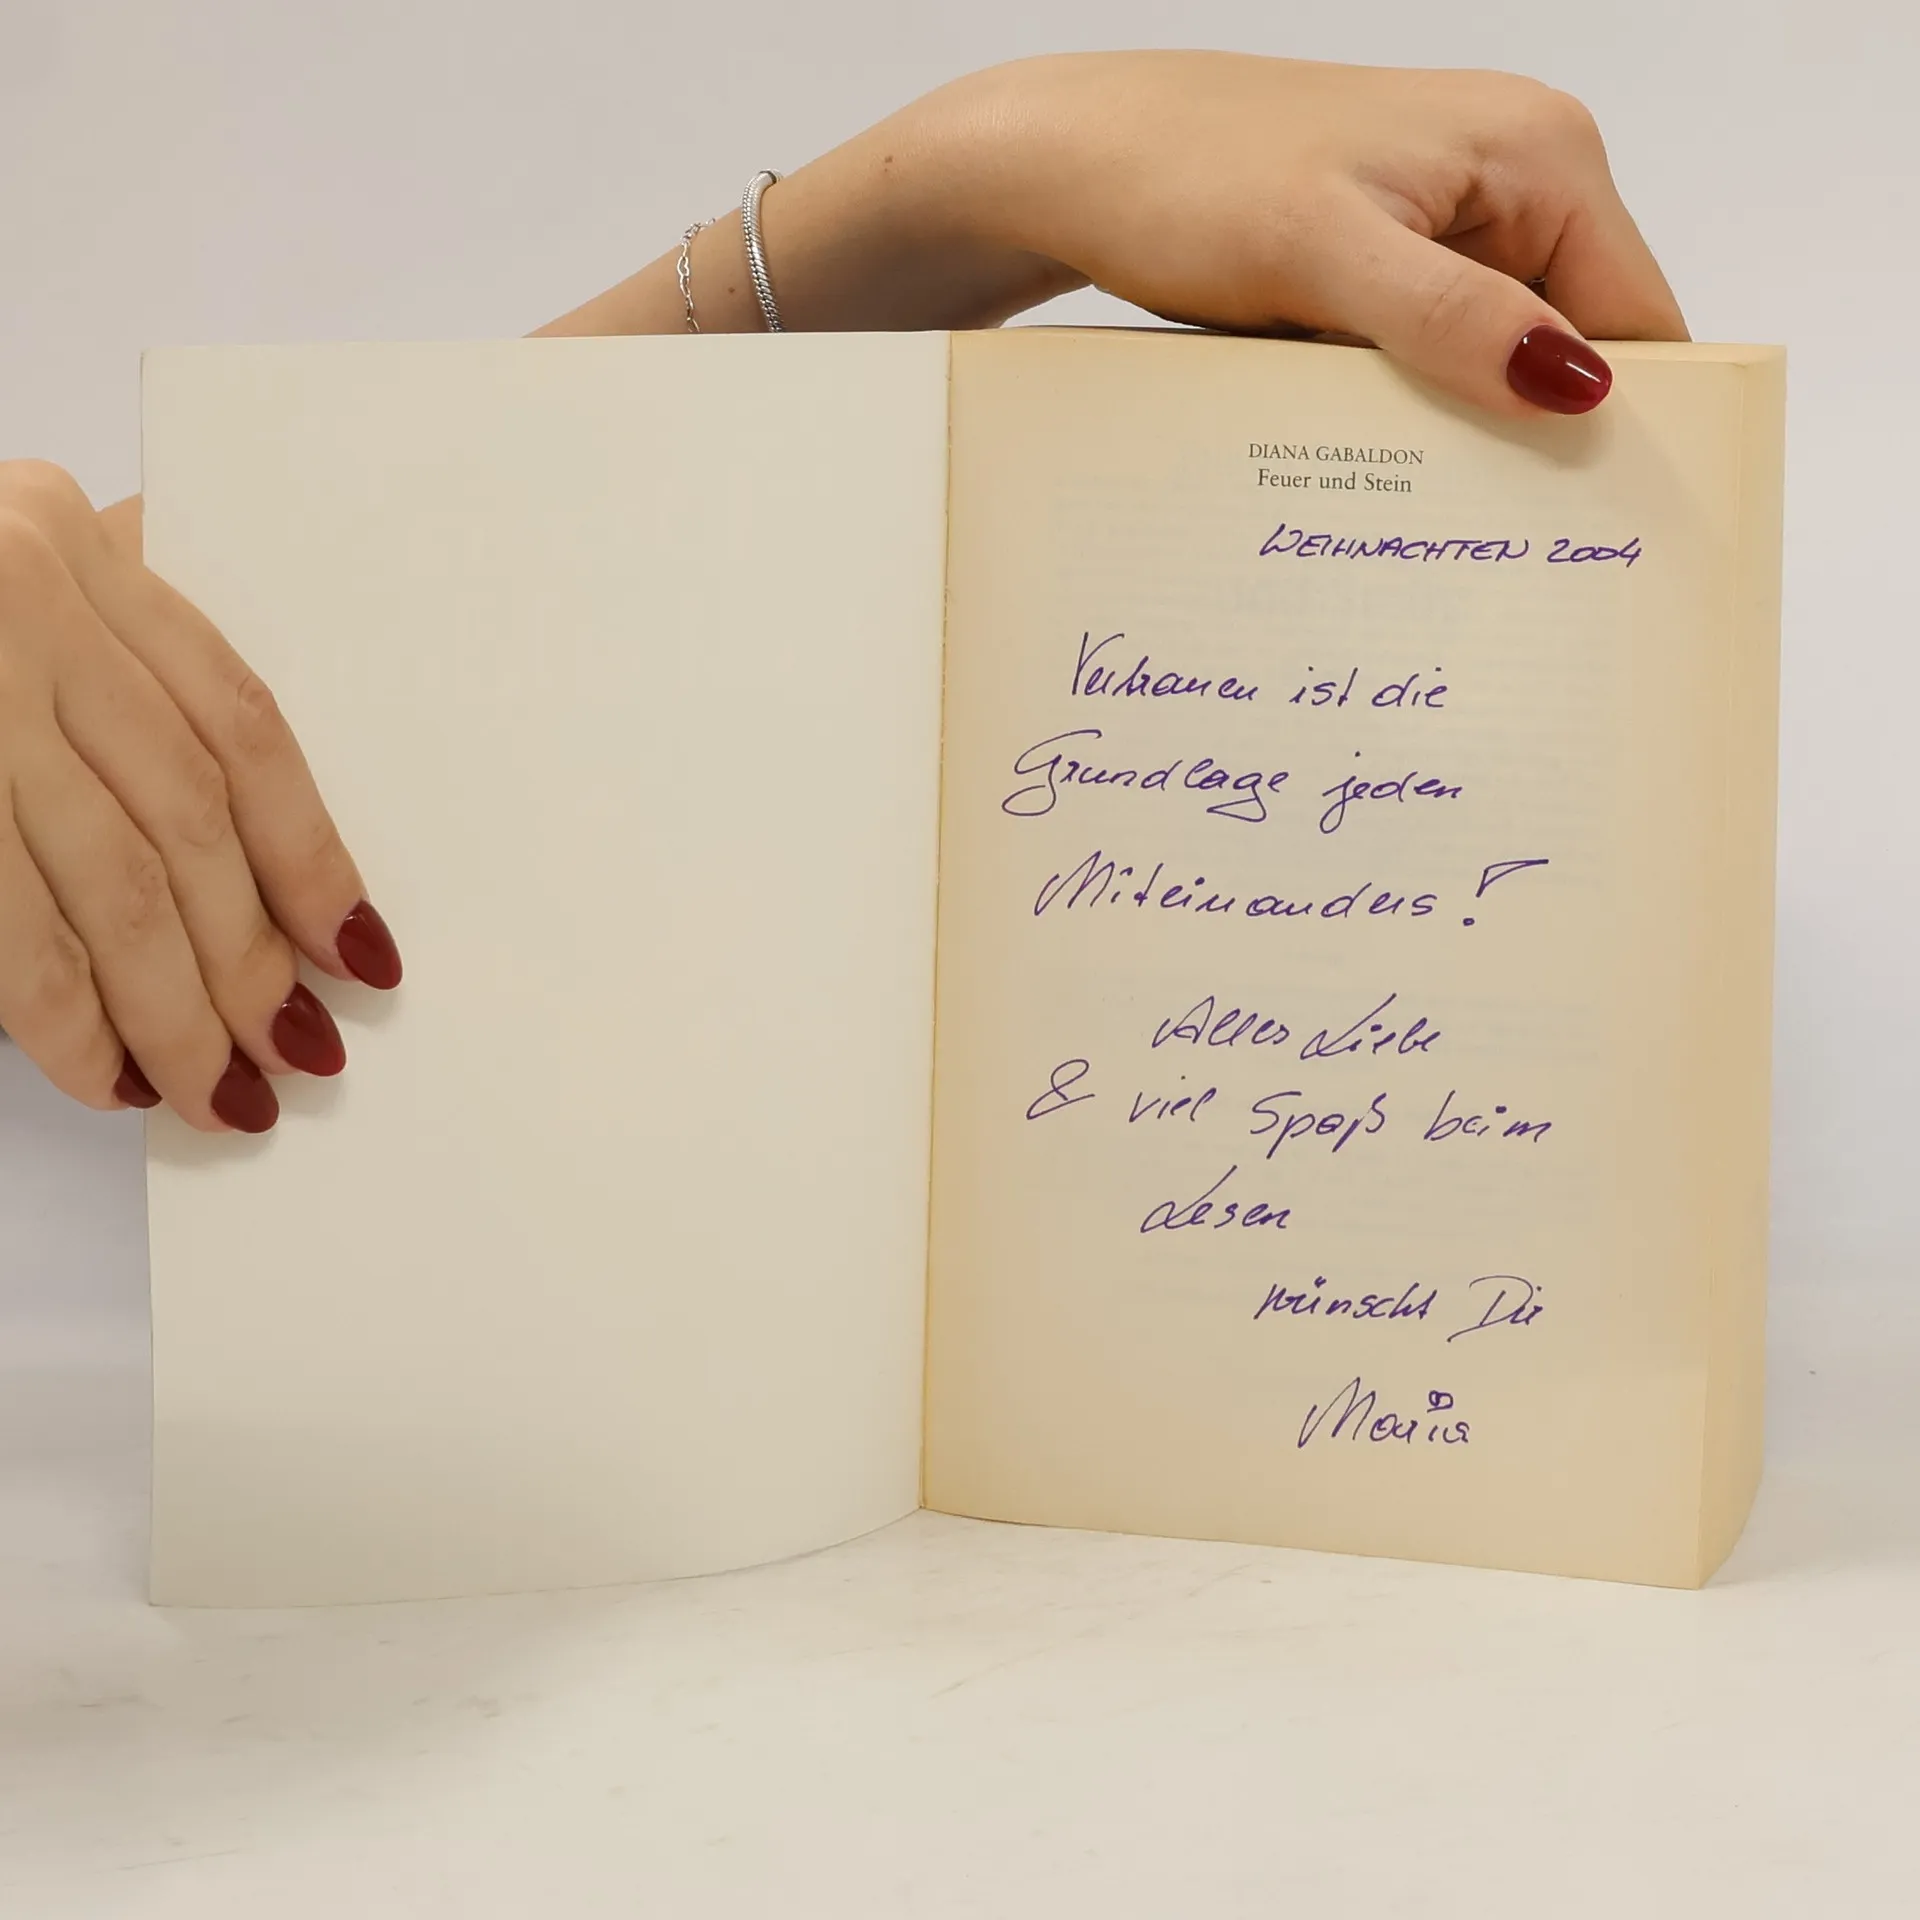 DIANA GABALDON
Feuer und Stein
WEIHNACHTEN 2004
Vertrauen ist die
Grundlage jeden
Miteinanders!
Alles Liebe
& viel Spaß beim
Lesen
wünscht Dir
Maria